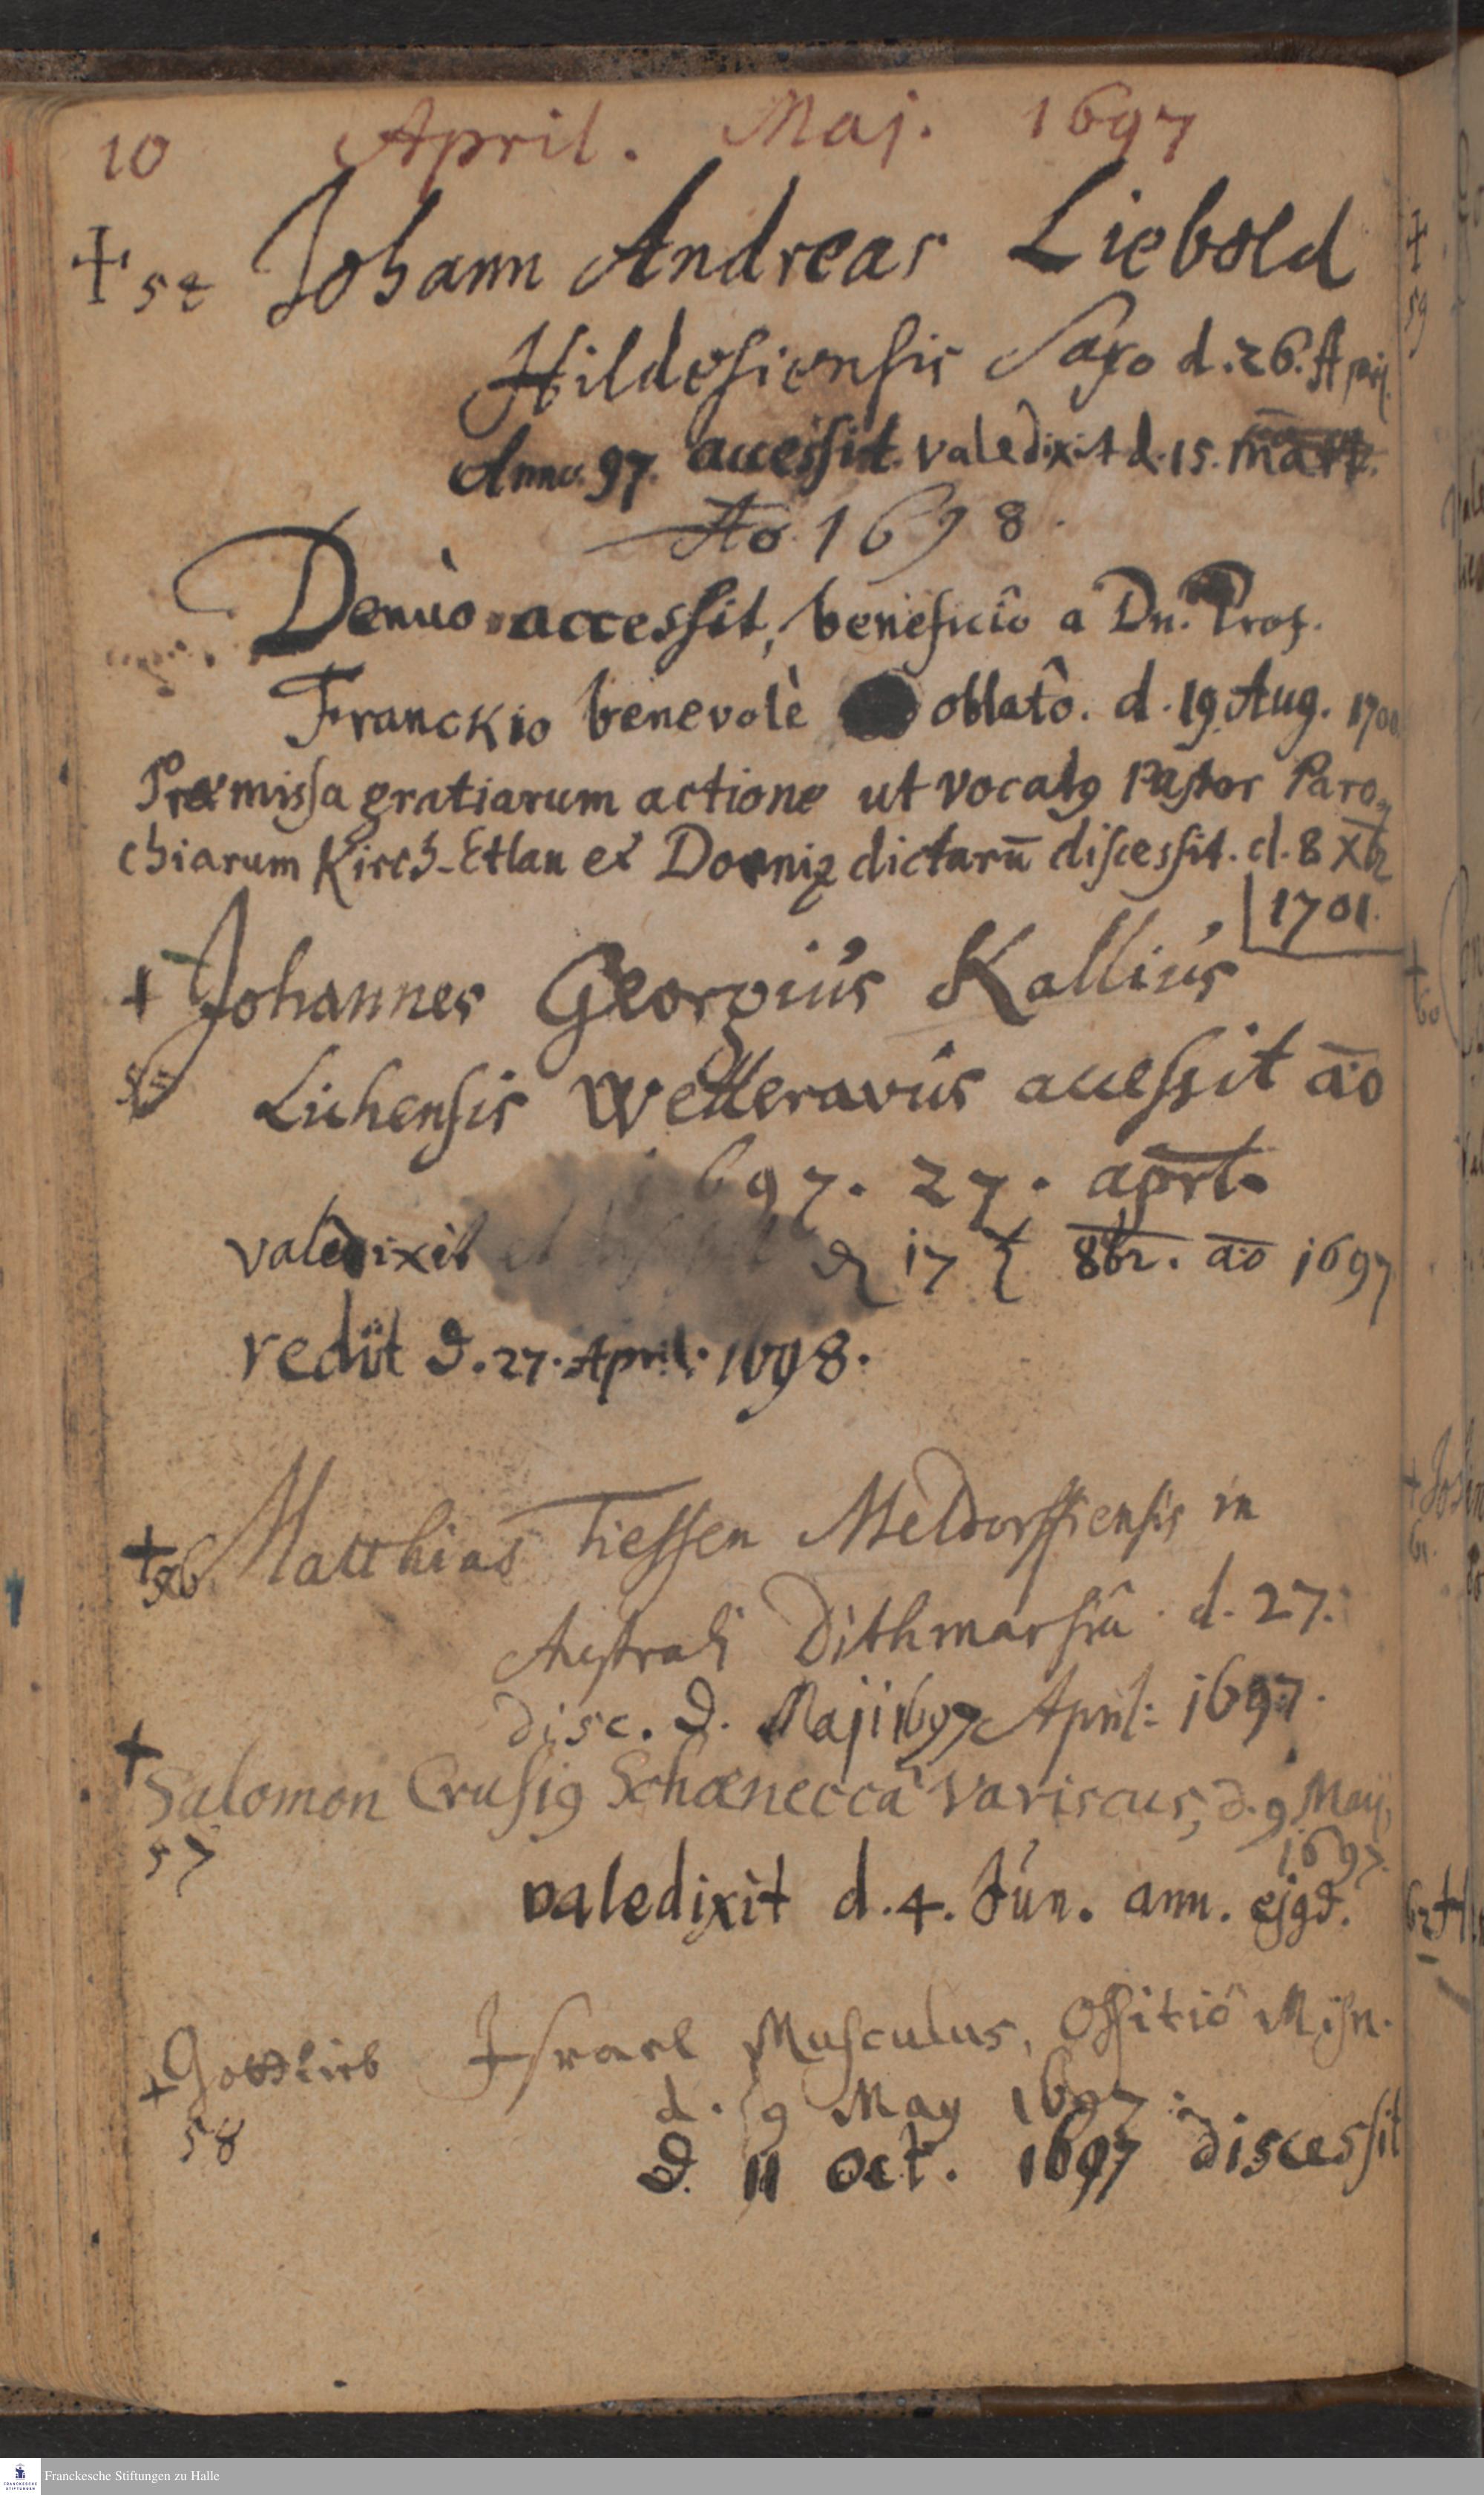 10 April. Maj. 1697
+ 54 Johann Andreas Liebold
Hildesiensis Saxo d. 26. Apri.
Anno. 97. accessit. valedixit d. 15. mart.
Ao 1698.
Denuò accessit, beneficiô a Dn. Prof.
Franckio benevolè oblatô. d. 19. Aug. 1700
Præmissa gratiarum actione ut vocatꝰ Pastor Paro-
chiarum Kirch-Etlau et Dorniz dictarū discessit. d. 8 Xbr
1701.
+ Johannes Georgius Kallius
55 Lichensis Wetteravius accessit ão
1697. 27. aprl.
valedixit d 17 8br. ao 1697
rediit d. 27. April. 1698.
+ 56 Matthias Tiessen Meldorffiensis in
Australi Dithmarsiâ d. 27.
disc. d. Maji 1697 April: 1697.
+ Salomon Crusiꝰ Schœneccâ Variscus, d. 9 Maij,
57 1697.
valedixit d. 4. Jun. ann. ejꝰd.
+ Gottlieb Israel Musculus, Ossitiô Misn.
58 d. 9 May 1697.
d. 11 Oct. 1697 discessit
Franckesche Stiftungen zu Halle